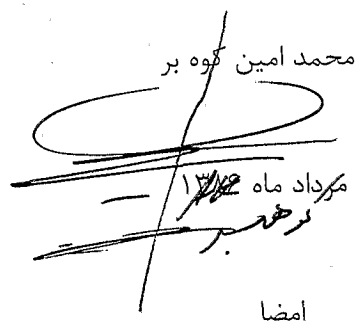 محمد امین کوه بر
مرداد ماه ۱۳۸۶
امضا